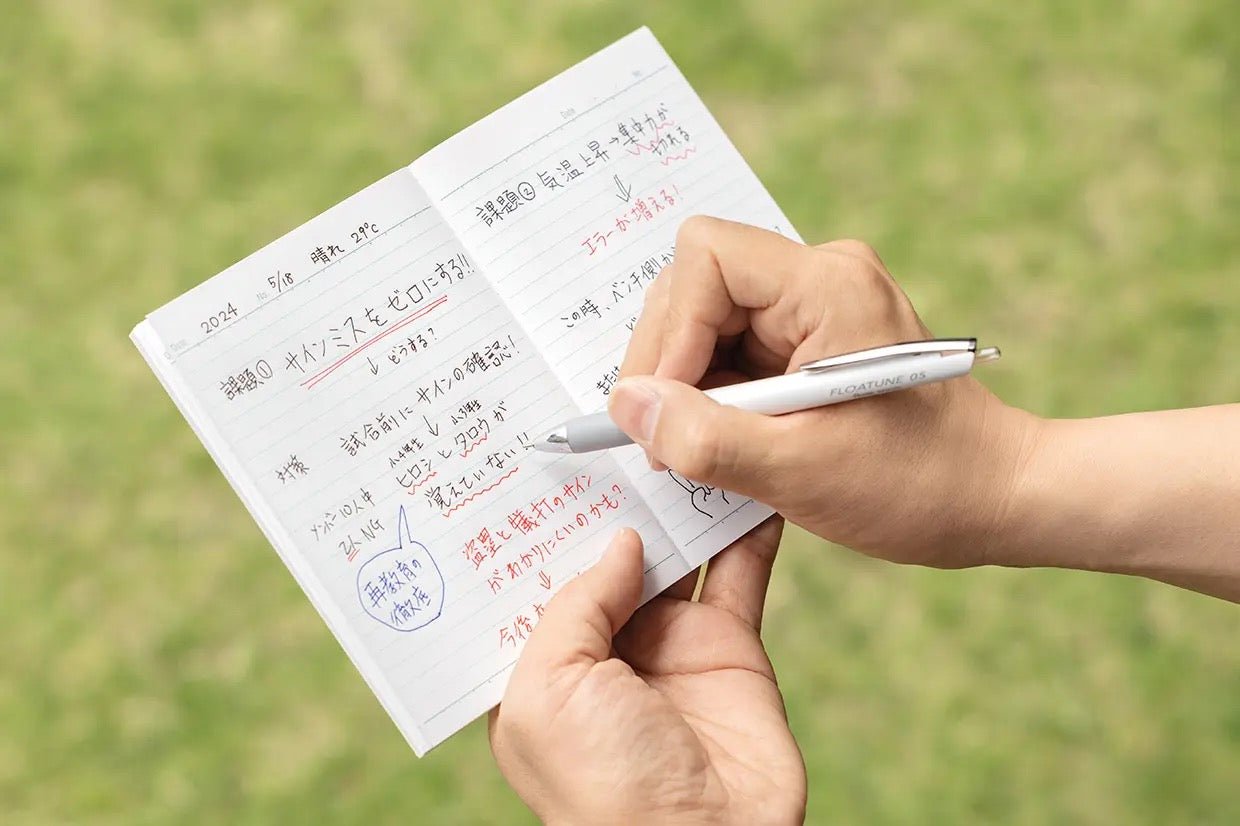 2024 No. 5/18 晴れ 29℃
Date
課題① サインミスをゼロにする!!
↓ どうする?
対策 試合前にサインの確認!
↓
小4年生 小3年生
ヒロシとタロウが
覚えていない!!
メンバー10人中
2人NG
再教育の
徹底
盗塁と犠打のサイン
がわかりにくいのかも?
⇓
今後
Date No.
課題② 気温上昇→集中力が
切れる
⇓
エラーが増える!
この時、ベンチ側が
または
FLOATUNE 05